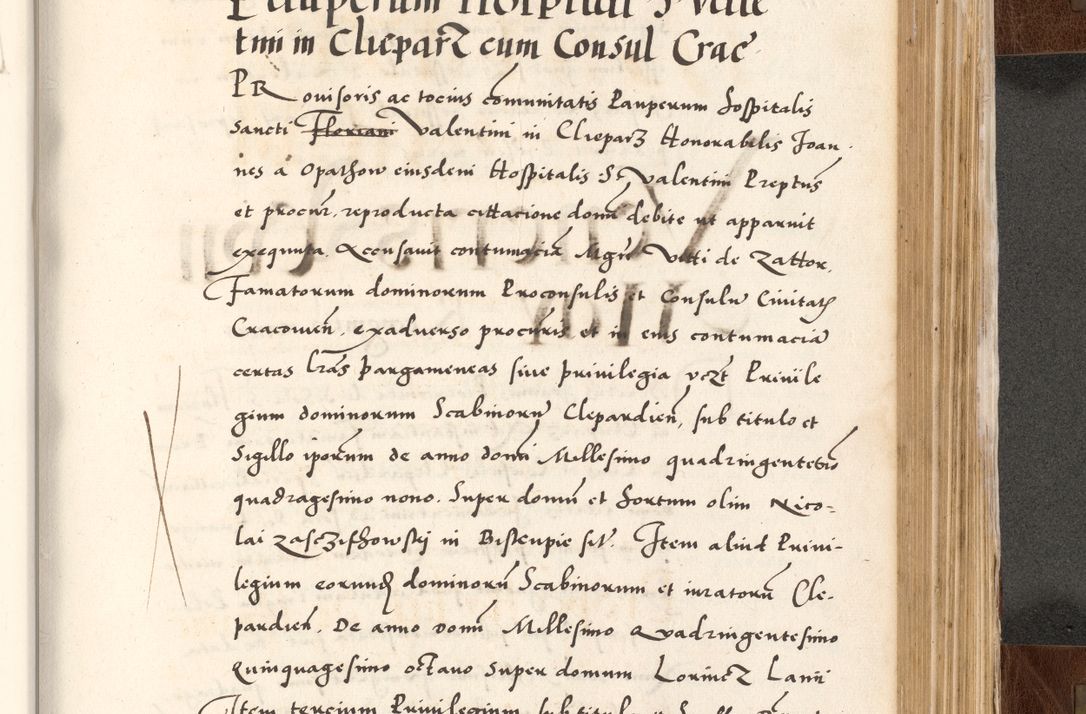 Pauperum Hospitalis S Vale
tini in Clieparz cum Consul Crac
PRovisoris ac tocius comunitatis Pauperum Hospitalis
Sancti Floriani Valentini in Clieparz Honorabilis Joan
nes a Opathow eiusdem Hospitalis Sti Valentini Preptus
et procur. reproducta cittacione domi debite ut apparuit
exequuta. Accusavit contumaciã Mgri Viti de Zattor.
Famatorum dominorum Proconsulis et Consulũ Civitatis
Cracovieñ. ex adverso procuris et in eius contumaciã
certas lrãs pargameneas sive privilegia vczt Privile
gium dominorum Scabinorũ Clepardieñ, sub titulo et
Sigillo iporum de anno domi Millesimo quadringentesio
quadragesimo nono. Super domũ et Hortum olim Nico-
lai zasczithowskÿ in Biskupie sit. Item aliud Privi-
legium eorund dominorũ Scabinorum et iuratorũ Cle-
pardieñ. De anno Domi Millesimo Quadringentesimo
Quinquagesimo octavo super domum Lorincz Lanii
Item tercium Privilegium sub titulo